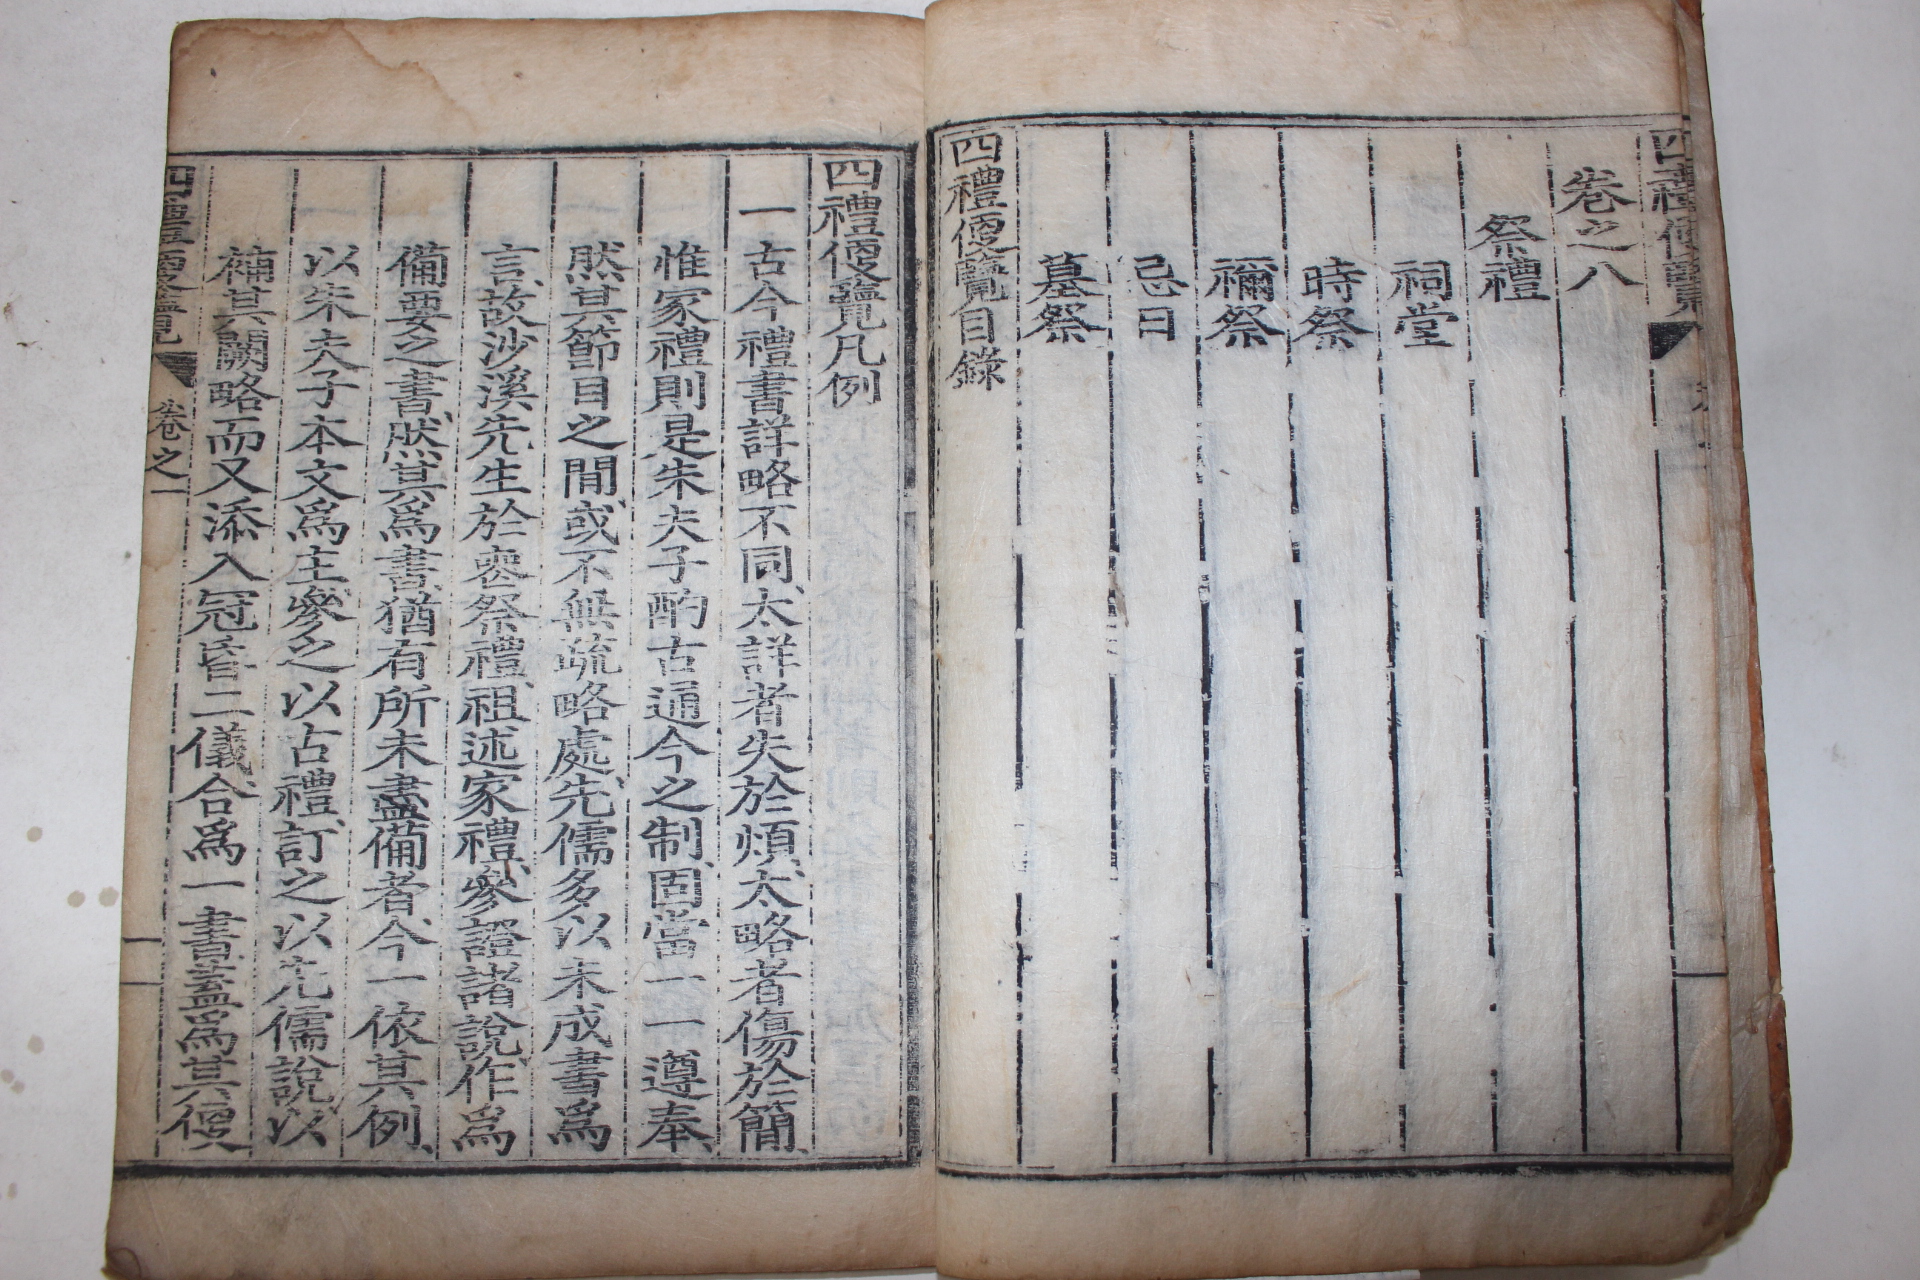 卷之八
祭禮
祠堂
時祭
禰祭
忌日
墓祭
四禮便覽目錄
四禮便覽凡例
一古今禮書詳略不同太詳者失於煩太略者傷於簡
惟家禮則是朱夫子酌古通今之制固當一一遵奉
然其節目之間或不無疏略處先儒多以未成書爲
言故沙溪先生於喪祭禮祖述家禮參證諸說作爲
備要之書然其爲書猶有所未盡備者今一依其例
以朱夫子本文爲主參之以古禮訂之以先儒說以
補其闕略而又添入冠昏二儀合爲一書蓋爲其便
四禮便覽 卷之一